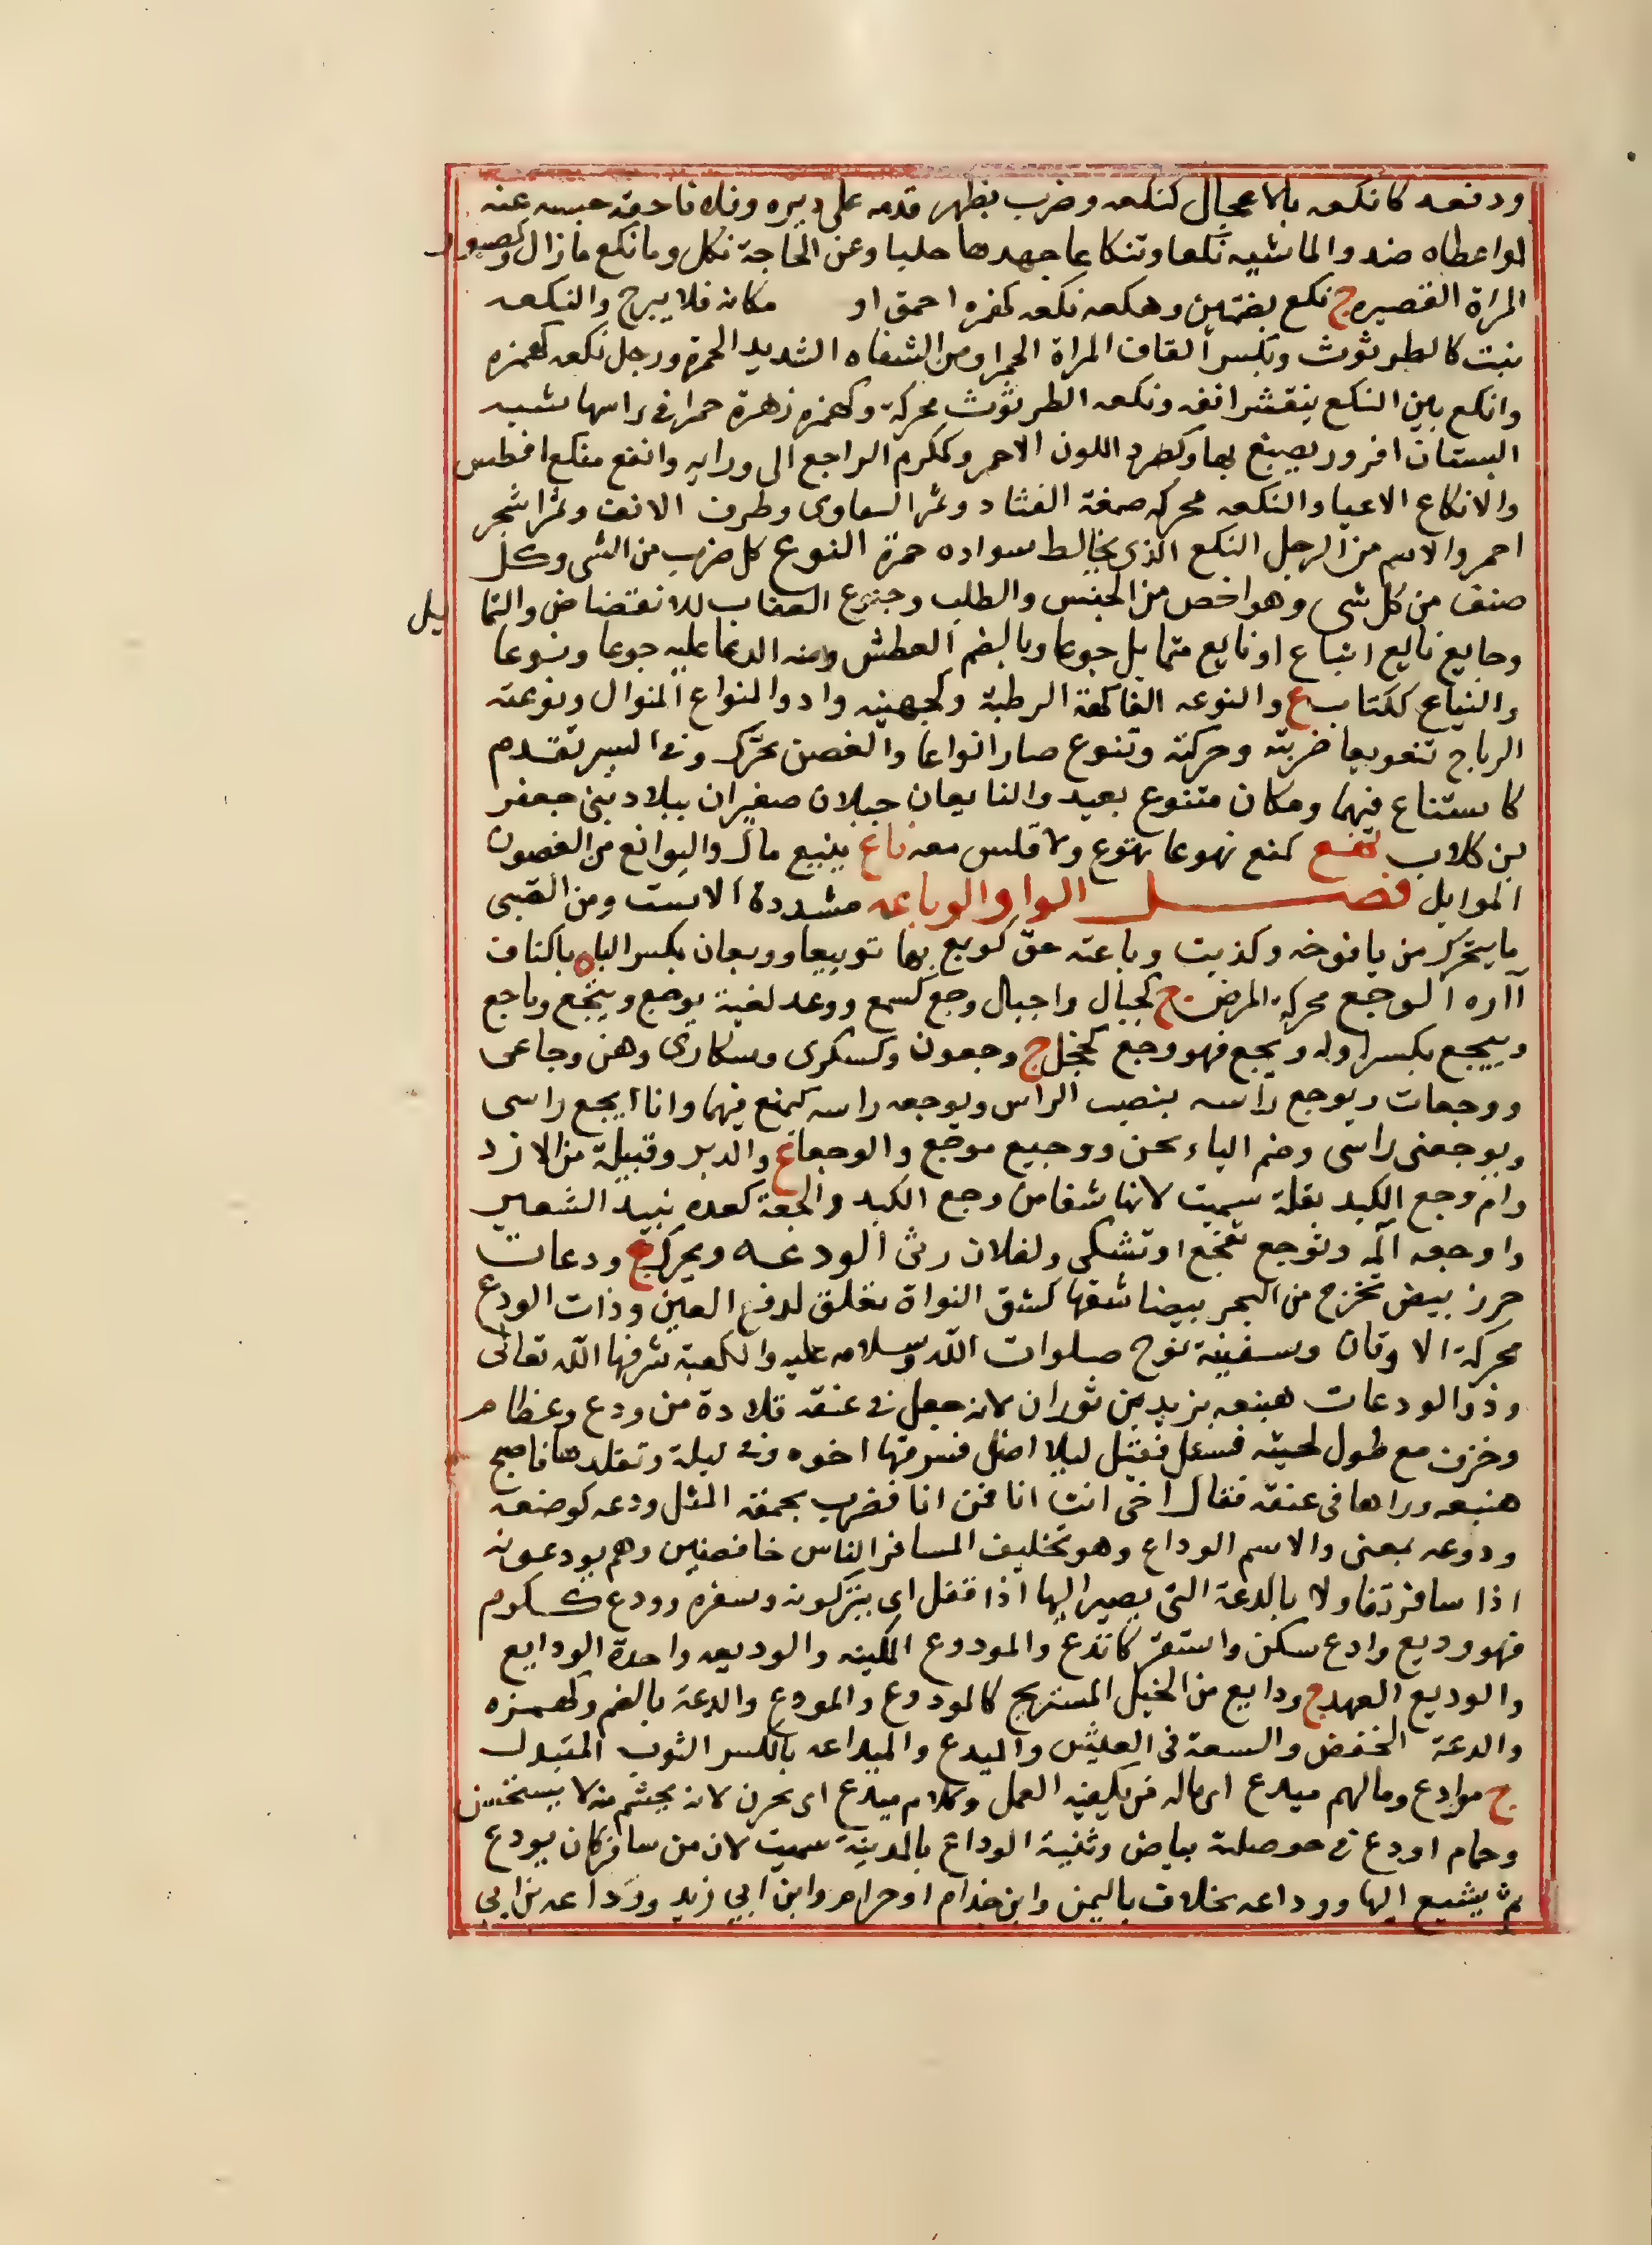 ودفعه كانكعه بالاعجال كنكعه وضرب بظهر قدمه على دبره وفلانا حقه حبسه عنه
او اعطاه ضد والماشيه نكعا وتنكاعا جهدها حلبا وعن الحاجة نكل وما نكع ما زال وكصبور
المراة القصيره ج نكع بضمتين وهكعه نكعه كهمزه احمق او مكانه فلا يبرح والنكعه
نبت كالطرثوث وبكسر القاف المراة الحمرا ومن الشفاه الشديد الحمره ورجل نكعه كهمزه
وانكع بين النكع يتقشر انفه ونكعه الطرثوث محركة وكهمزه زهرة حمرا في راسها تشبه
البستان افروز يصبغ بها وكصرد اللون الاحمر وككرم الراجع الى ورايه وانفع منكع افطس
والانكاع الاعيا والنكعه محركه صمغة القتاد وثمر النقاوى وطرف الانف وثمر شجر
احمر والاسم من الرجل النكع الذي يخالط سواده حمرة النوع كل ضرب من الشي وكل
صنف من كل شي وهو اخص من الجنس والطلب وجنوح العقاب للانقضاض والتمايل
وجايع نايع اتباع او نايع متمايل جوعا وبالضم العطش ومنه الدعا عليه جوعا ونوعا
والنياع ككتاب ع والنوعه الفاكهة الرطبة وكجهينه واد والمنواع المنوال ونوعته
الرياح تنويعا ضربته وحركته وتنوع صار انواعا والغصن تحرك وفي السير تقدم
كاستناع فيهما ومكان متنوع بعيد والنايعان جبلان صغيران ببلاد بني جعفر
بن كلاب نهع كمنع نهوعا تهوع ولا قلس معه ناع ينيع مال والنوايع من الغصون
الموايل فصل الواو الوباعه مشددة الاست ومن الصبي
ما يتحرك من يافوخه وكذبت وباعته حق كوبع بها توبيعا ووبعان بكسر الباه باكناف
آاره الوجع محركة المرض ج كجبال واجبال وجع كسمع ووعد لغية يوجع وييجع وياجع
وييجع بكسر اوله ويجع فهو وجع كخجل ج وجعون وكسكرى وسكارى وهن وجاعى
ووجعات ويوجع راسه بنصب الراس ويوجعه راسه كيمنع فيهما وانا ايجع راسي
ويوجعني راسي وضم الياء لحن ووجيع موجع والوجعا ع والدبر وقبيلة من الازد
وام وجع الكبد بقلة سميت لانها شفا من وجع الكبد والجعة كعده نبيد الشعير
واوجعه آلمه وتوجع تفجع او تشكى ولفلان رثى الودعه ويحرك ج ودعات
خرز بيض تخرج من البحر بيضا شقها كشق النواة تعلق لدفع العين وذات الودع
محركة الاوثان وسفينة نوح صلوات الله وسلامه عليه والكعبة شرفها الله تعالى
وذو الودعات هبنعه يزيد بن ثوران لانه جعل في عنقه قلادة من ودع وعظام
وخزف مع طول لحيته فسئل فقيل ليلا اضل فسرقها اخوه في ليلة وتقلدها فاصبح
هنبعه وراها في عنقه فقال اخي انت انا فمن انا فضرب بحمقه المثل ودعه كوضعه
ودوعه بمعنى والاسم الوداع وهو تخليف المسافر الناس خافضين وهم يودعونه
اذا سافر تفاولا بالدعة التي يصير اليها اذا قفل اي يتركونه وسفره وودع ككرم
فهو وديع وادع سكن واستقر كاتدع والمودوع السكينه والوديعه واحدة الودايع
والوديع العهد ج ودايع من الخيل المستريح كالمودوع والمودع والدعة بالضم وكهمزه
والدعة الخفض والسعة في العيش والميدع والميداعه بالكسر الثوب المتبدل
ج موادع وما لهم ميدع اي ماله من يكفيه العمل وكلام ميدع اي يحزن لانه يحتشم منه لا يستحسن
وحمام اودع في حوصلته بياض وثنية الوداع بالمدينة سميت لان من سافر كان يودع
ثم يشيع اليها ووداعه مخلاف باليمن وابن خذام او حرام وابن ابي زيد ووداعه بن ابي